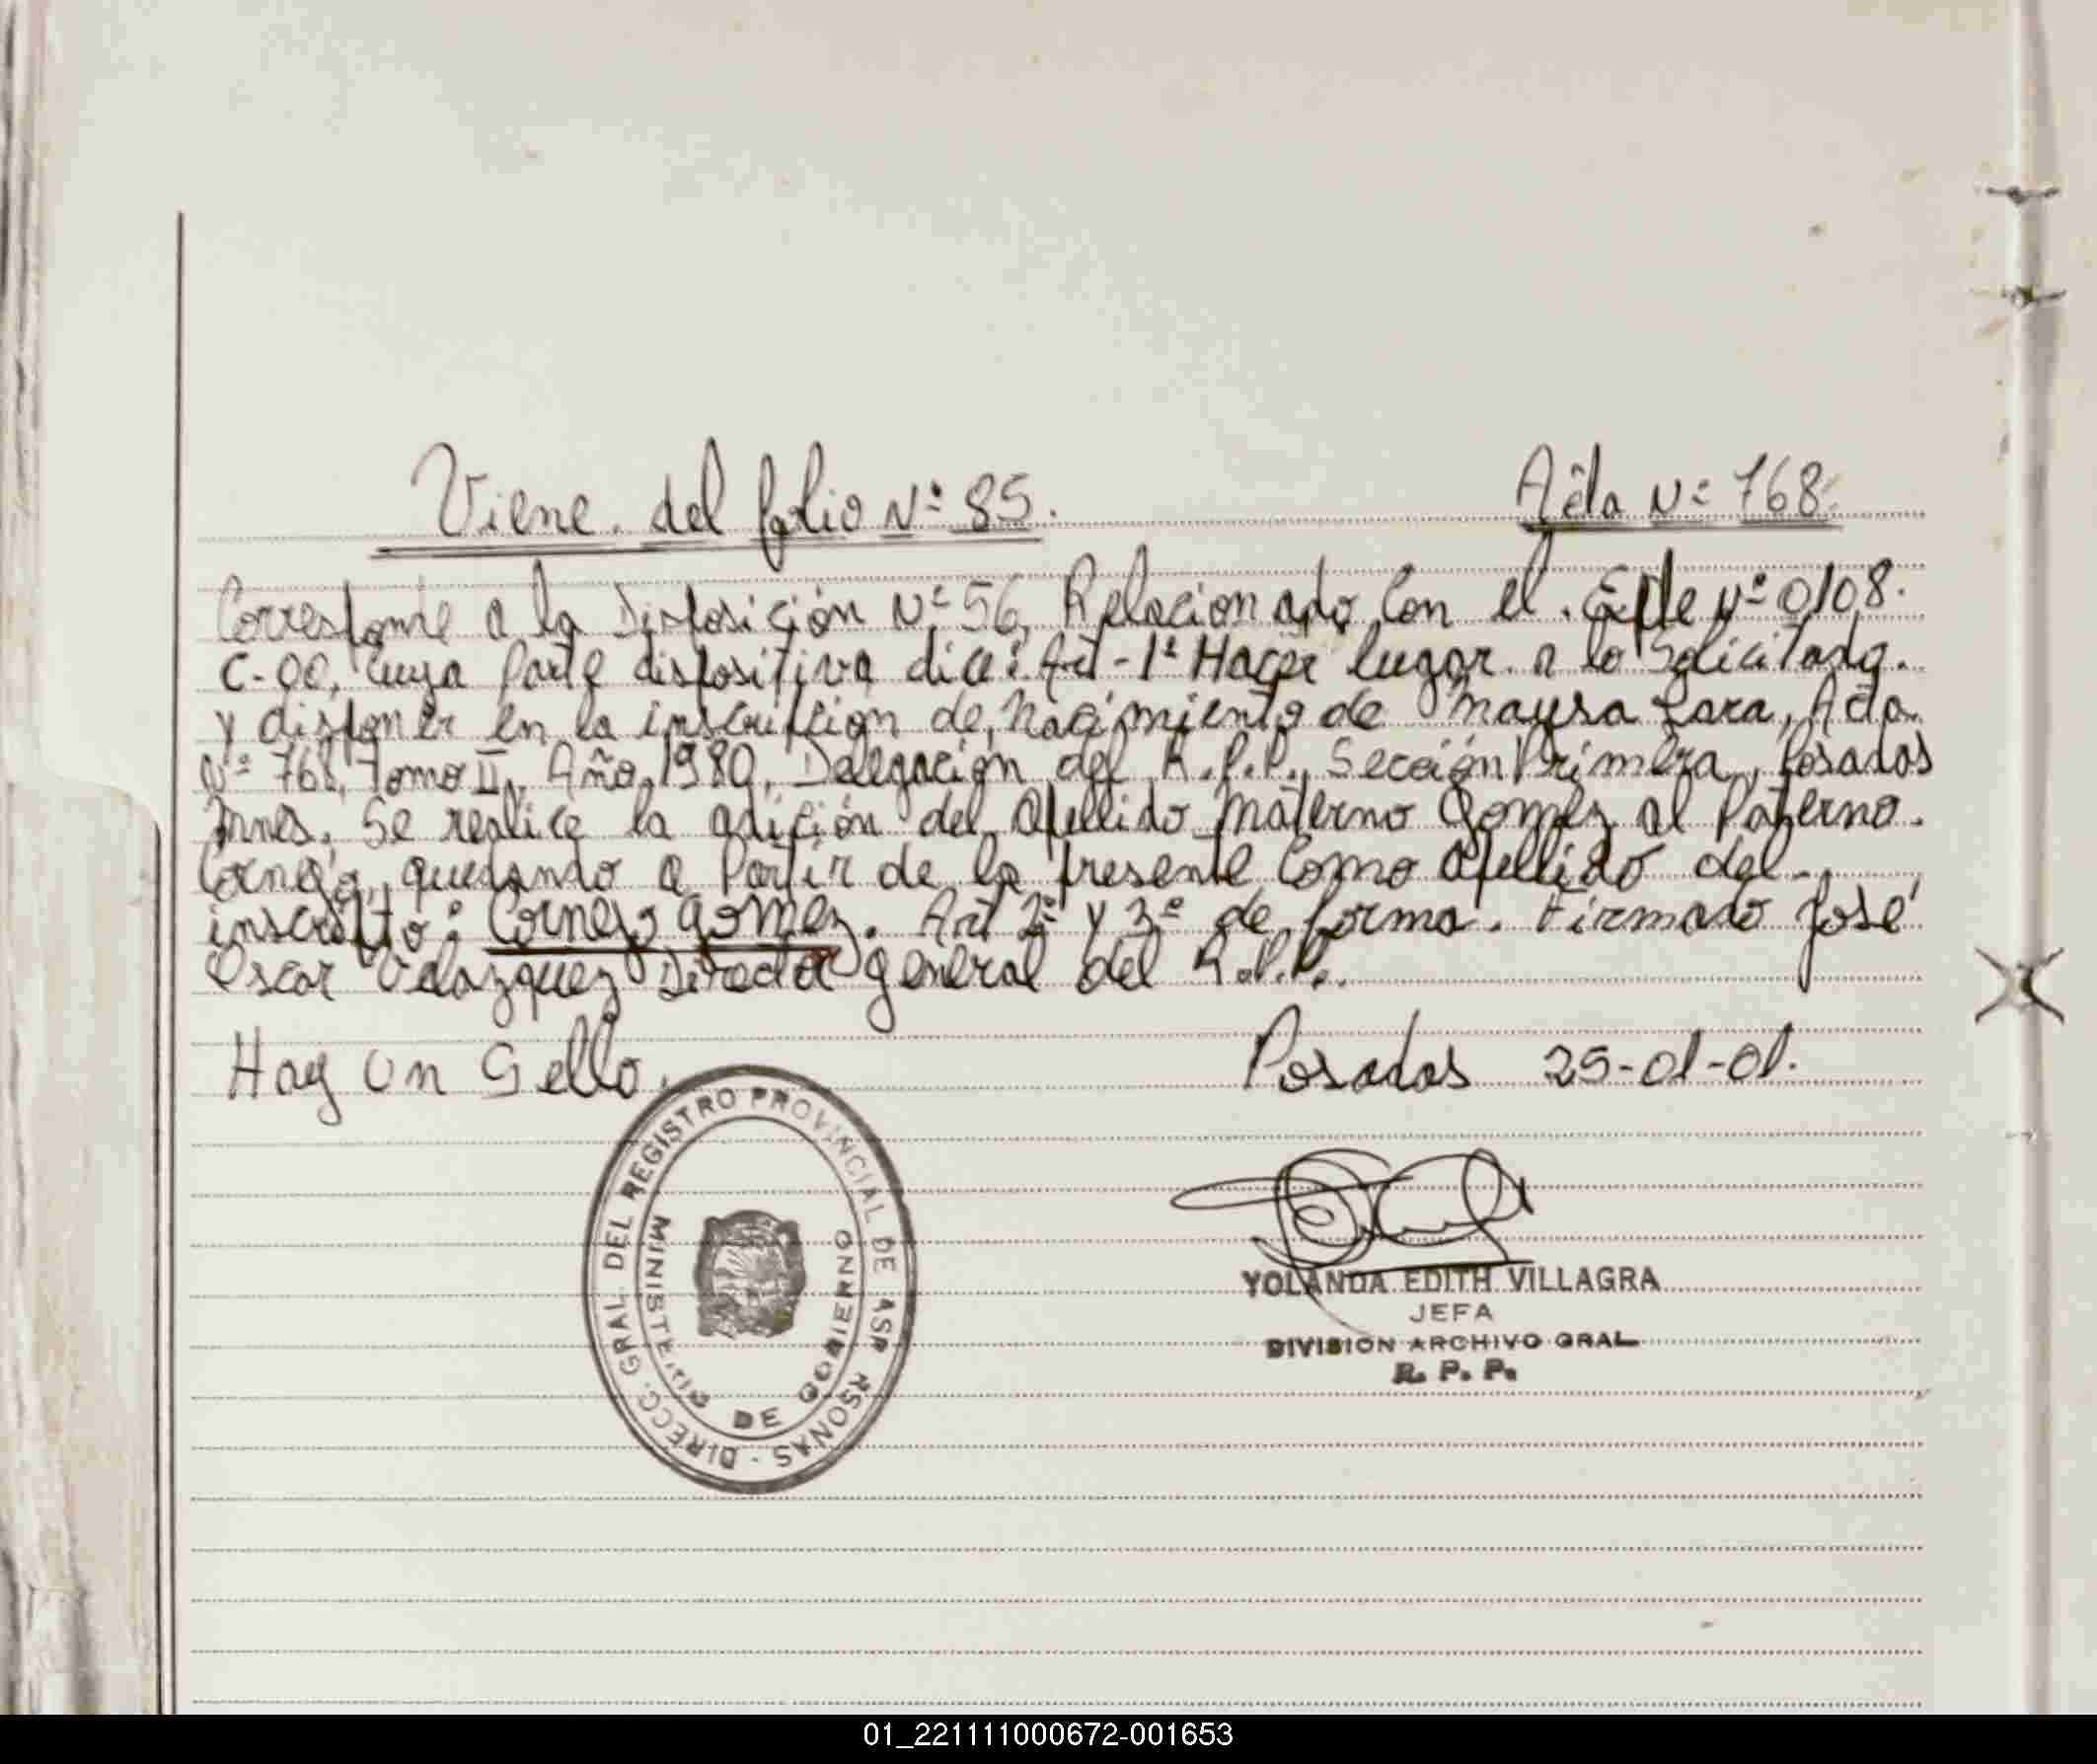 Viene del folio Nº 85. Acta Nº 768.
Corresponde a la Disposición Nº 56, Relacionado con el Expte Nº 0108.
C-00, cuya parte dispositiva dice: Art-1º Hacer lugar a lo solicitado.
y disponer en la inscripción de nacimiento de Maysa Sara, Acta
Nº 768, Tomo II, Año 1980, Delegación del R.P.P. Sección Primera, Posadas
Mnes. Se realice la adición del apellido materno Gomez al Paterno.
Cornejo, quedando a partir de la presente como apellido del-
inscripto: Cornejo Gomez. Art 2º y 3º de forma. Firmado José
Oscar Velazquez Director General del R.P.P.
Hay Un Sello. Posadas 25-01-01.
DIRECC. GRAL. DEL REGISTRO PROVINCIAL DE RSONAS
MINISTERIO DE GOBIERNO
YOLANDA EDITH VILLAGRA
JEFA
DIVISION ARCHIVO GRAL
R. P. P.
01_221111000672-001653